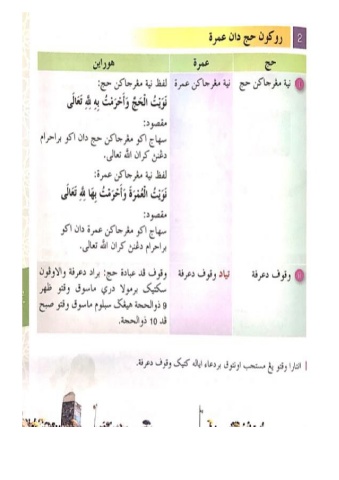 2 روكون حج دان عمرة
حج عمرة هوراين
نية مڠرجاكن حج
نية مڠرجاكن عمرة
لفظ نية مڠرجاكن حج:
نَوَيْتُ الْحَجَّ وَأَحْرَمْتُ بِهِ لِلّٰهِ تَعَالَى
مقصود:
سهاج اكو مڠرجاكن حج دان اكو براحرام
دڠن كران الله تعالى.
لفظ نية مڠرجاكن عمرة:
نَوَيْتُ الْعُمْرَةَ وَأَحْرَمْتُ بِهَا لِلّٰهِ تَعَالَى
مقصود:
سهاج اكو مڠرجاكن عمرة دان اكو
براحرام دڠن كران الله تعالى.
وقوف دعرفة
تياد وقوف دعرفة
وقوف قد عبادة حج: براد دعرفة والاوڤون
سكتيك برمولا دري ماسوق وقتو ظهر
9 ذوالحجة هيڠݢ سبلوم ماسوق وقتو صبح
قد 10 ذوالحجة.
انتارا وقتو يڠ مستحب اونتوق بردعاء اياله كتيك وقوف دعرفة.